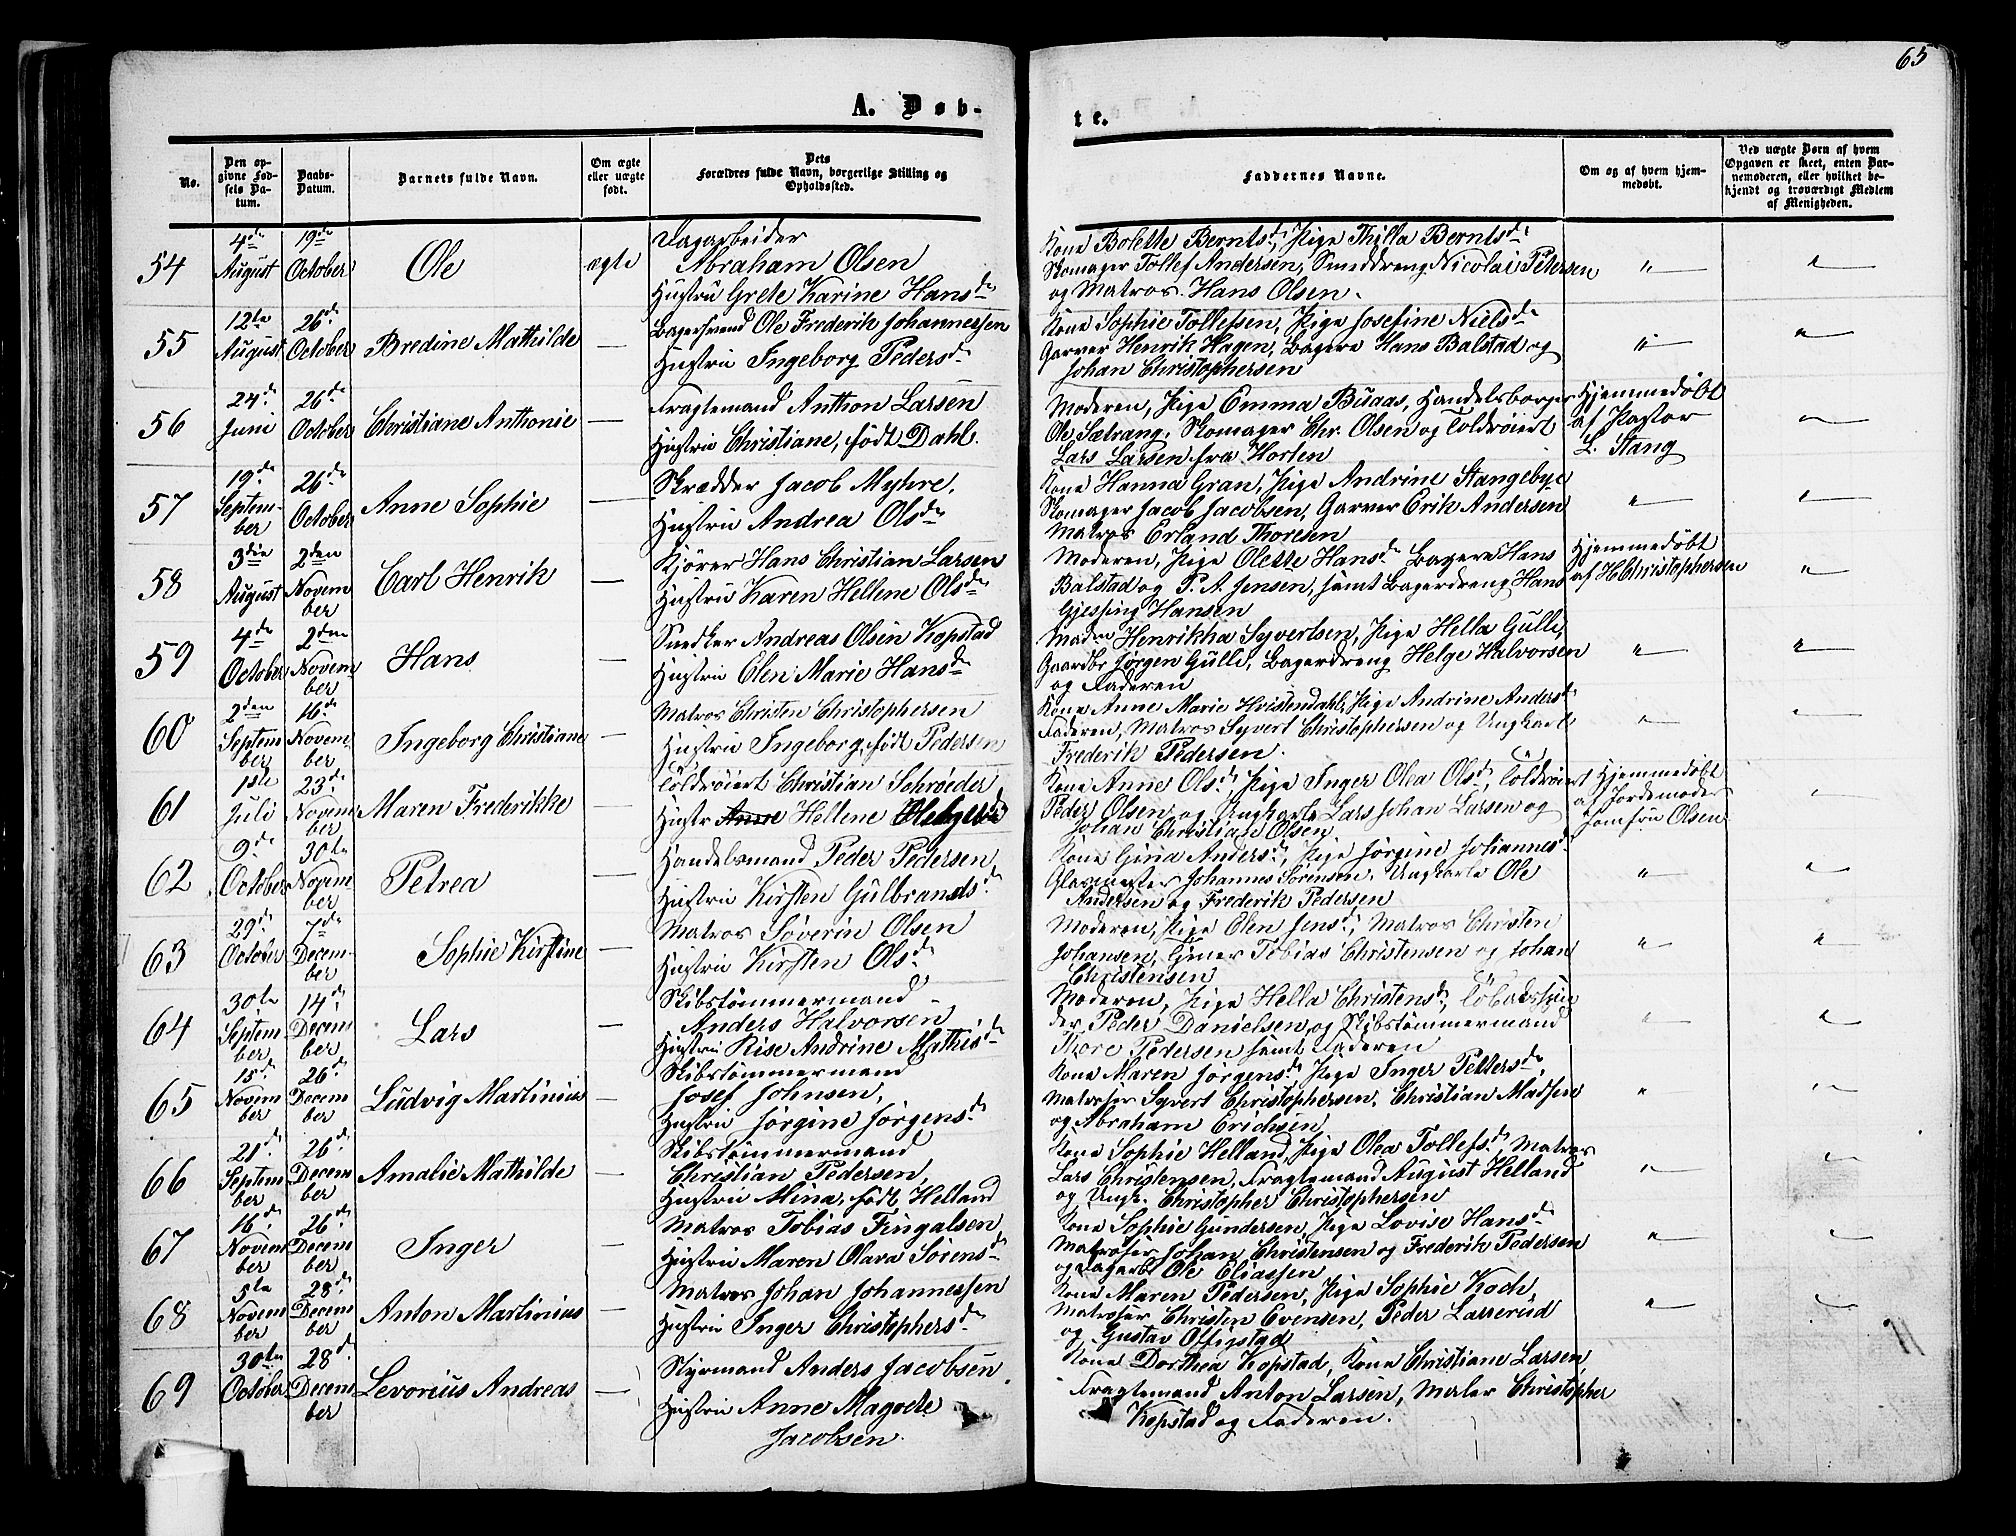 65
A. Døb-
te.
No.
Den op-
givne Fød-
sels Da-
tum.
Daabs-
Datum.
Barnets fulde Navn.
Om ægte
eller uægte
født.
Dets
Forældres fulde Navn, borgerlige Stilling og
Opholdssted.
Faddernes Navne.
Om og af hvem hjem-
medøbt.
Ved uægte Børn af hvem
Opgaven er skeet, enten Bar-
nemoderen, eller hvilket be-
kjendt og troværdigt Medlem
af Menigheden.
54
4de
August
19de
October
Ole
ægte
Dagarbeider
Abraham Olsen
Hustru Grete Karine Hansd.
Kone Bolette Berntsd., Pige Thilla Berntsd.
Skomager Tollef Andersen, Smeddreng Nicolai Petersen
og Matros Hans Olsen.
55
12te
August
26de
October
Bredine Mathilde
Bagersvend Ole Frederik Johannessen
Hustru Ingeborg Pedersd.
Kone Sophie Tollefsen, Pige Josefine Nielsd.
Garver Henrik Hagen, Bagere Hans Balstad og
Johan Christophersen
56
24d.
Juni
26de
October
Christiane Anthonie
Fragtemand Anthon Larsen
Hustru Christiane, født Dahl.
Moderen, Pige Emma Buaas, Handelsborger
Ole Sætrang, Skomager Chr. Olsen og Toldroiert
Lars Larsen fra Horten
Hjemmedøbt
af Pastor
L. Stang
57
19de
Septem-
ber
26de
October
Anne Sophie
Skrædder Jacob Myhre,
Hustru Andrea Olsd.
Kone Hanna Gran, Pige Andrine Stangebye
Skomager Jacob Jacobsen, Garver Erik Andersen
Matros Erland Thoresen
58
3die
August
2den
Novem
ber
Carl Henrik
Kjører Hans Christian Larsen
Hustru Karen Hellene Olsd.
Moderen, Pige Olette Hansd. Bagere Hans
Balstad og P. A. Jensen, samt Bagerdreng Hans
Gjessing Hansen
Hjemmedøbt
af H Christophersen
59
4de
October
2den
Novem
ber
Hans
Snedker Andreas Olsen Kopstad
Hustru Elen Marie Hansd.
Madm Henrikha Syvertsen, Pige Hella Gulli,
Gaardbr Jørgen Gulli, Bagerdreng Helge Halvorsen
og Faderen
60
2den
Septem
ber
16d.
Novem-
ber
Ingeborg Christiane
Matros Christen Christophersen
Hustru Ingeborg, født Pedersen
Kone Anne Marie Hvistendahl, Pige Andrine Andersd.
Faderen, Matros Syvert Christophersen og Ungkarl
Frederik Pedersen.
61
1ste
Juli
23d.
Novem
ber
Maren Frederikke
Toldroiert Christian Schrøder
Hustr Anne Hellene
Kone Anne Olsd., Pige Inger Olea Olsd., Toldroiert
Peder Olsen og Ungkarle Lars Johan Larsen og
Johan Christian Olsen
Hjemmedøbt
af Jordemoder
Jomfru Olsen
62
9d.
October
30te
Novem-
ber
Petrea
Handelsmand Peder Pedersen
Hustru Kirsten Gulbrandsd.
Kone Gina Andersd., Pige Jørgine Johannesd.
Glasmester Johannes Sørensen, Ungkarle Ole
Andersen og Frederik Pedersen
63
29d.
October
7de
Decem-
ber
Sophie Kirstine
Matros Søverin Olsen
Hustru Kirsten Olsd.
Moderen, Pige Elen Jensd., Matros Christen
Johansen, Tobias Christensen og Johan
Christensen
64
30te
Septem
ber
14d.
Decem
ber
Lars
Skibstømmermand
Anders Halvorsen
Hustru Lise Andrine Mathisd.
Moderen, Pige Hella Christensd., Tobaksspin
der Peder Danielsen og Skibstømmermand
Thore Pedersen samt Faderen
65
15d.
Novem
ber
26d.
Decem
ber
Ludvig Martinius
Skibstømmermand
Josef Johnsen,
Hustru Jørgine Jørgensd.
Kone Maren Jørgensd., Pige Inger Pettersd.,
Matroser Syvert Christophersen, Christian Madsen
og Abraham Erichsen
66
21d.
Septem
ber
26d.
Decem
ber
Amalie Mathilde
Skibstømmermand
Christian Pedersen,
Hustru Mina, født Helland
Kone Sophie Helland, Pige Olea Tollefsd., Matros
Lars Christensen, Fragtemand August Helland
og Ungk. Christopher Christophersen
67
16d.
Novem
ber
26d.
Decem
ber
Inger
Matros Tobias Fingalsen
Hustru Maren Olava Sørensd.
Kone Sophie Gundersen, Pige Lovise Hansd.
Matroser Johan Christensen og Frederik Pedersen
og Dagarb. Ole Eliassen
68
5te
Novem
ber
28d.
Decem
ber
Anton Martinius
Matros Johan Johannessen
Hustru Inger Christophersd.
Kone Maren Pedersen, Pige Sophie Koch,
Matroser Christen Evensen, Peder Lasserud
og Gustav
69
30te
October
28d.
Decem
ber
Levorius Andreas
Styrmand Anders Jacobsen
Hustru Anne Magrete
Jacobsen.
Kone Dorthea Kopstad, Kone Christiane Larsen
Fragtemand Anton Larsen, Maler Christopher
Kopstad og Faderen.